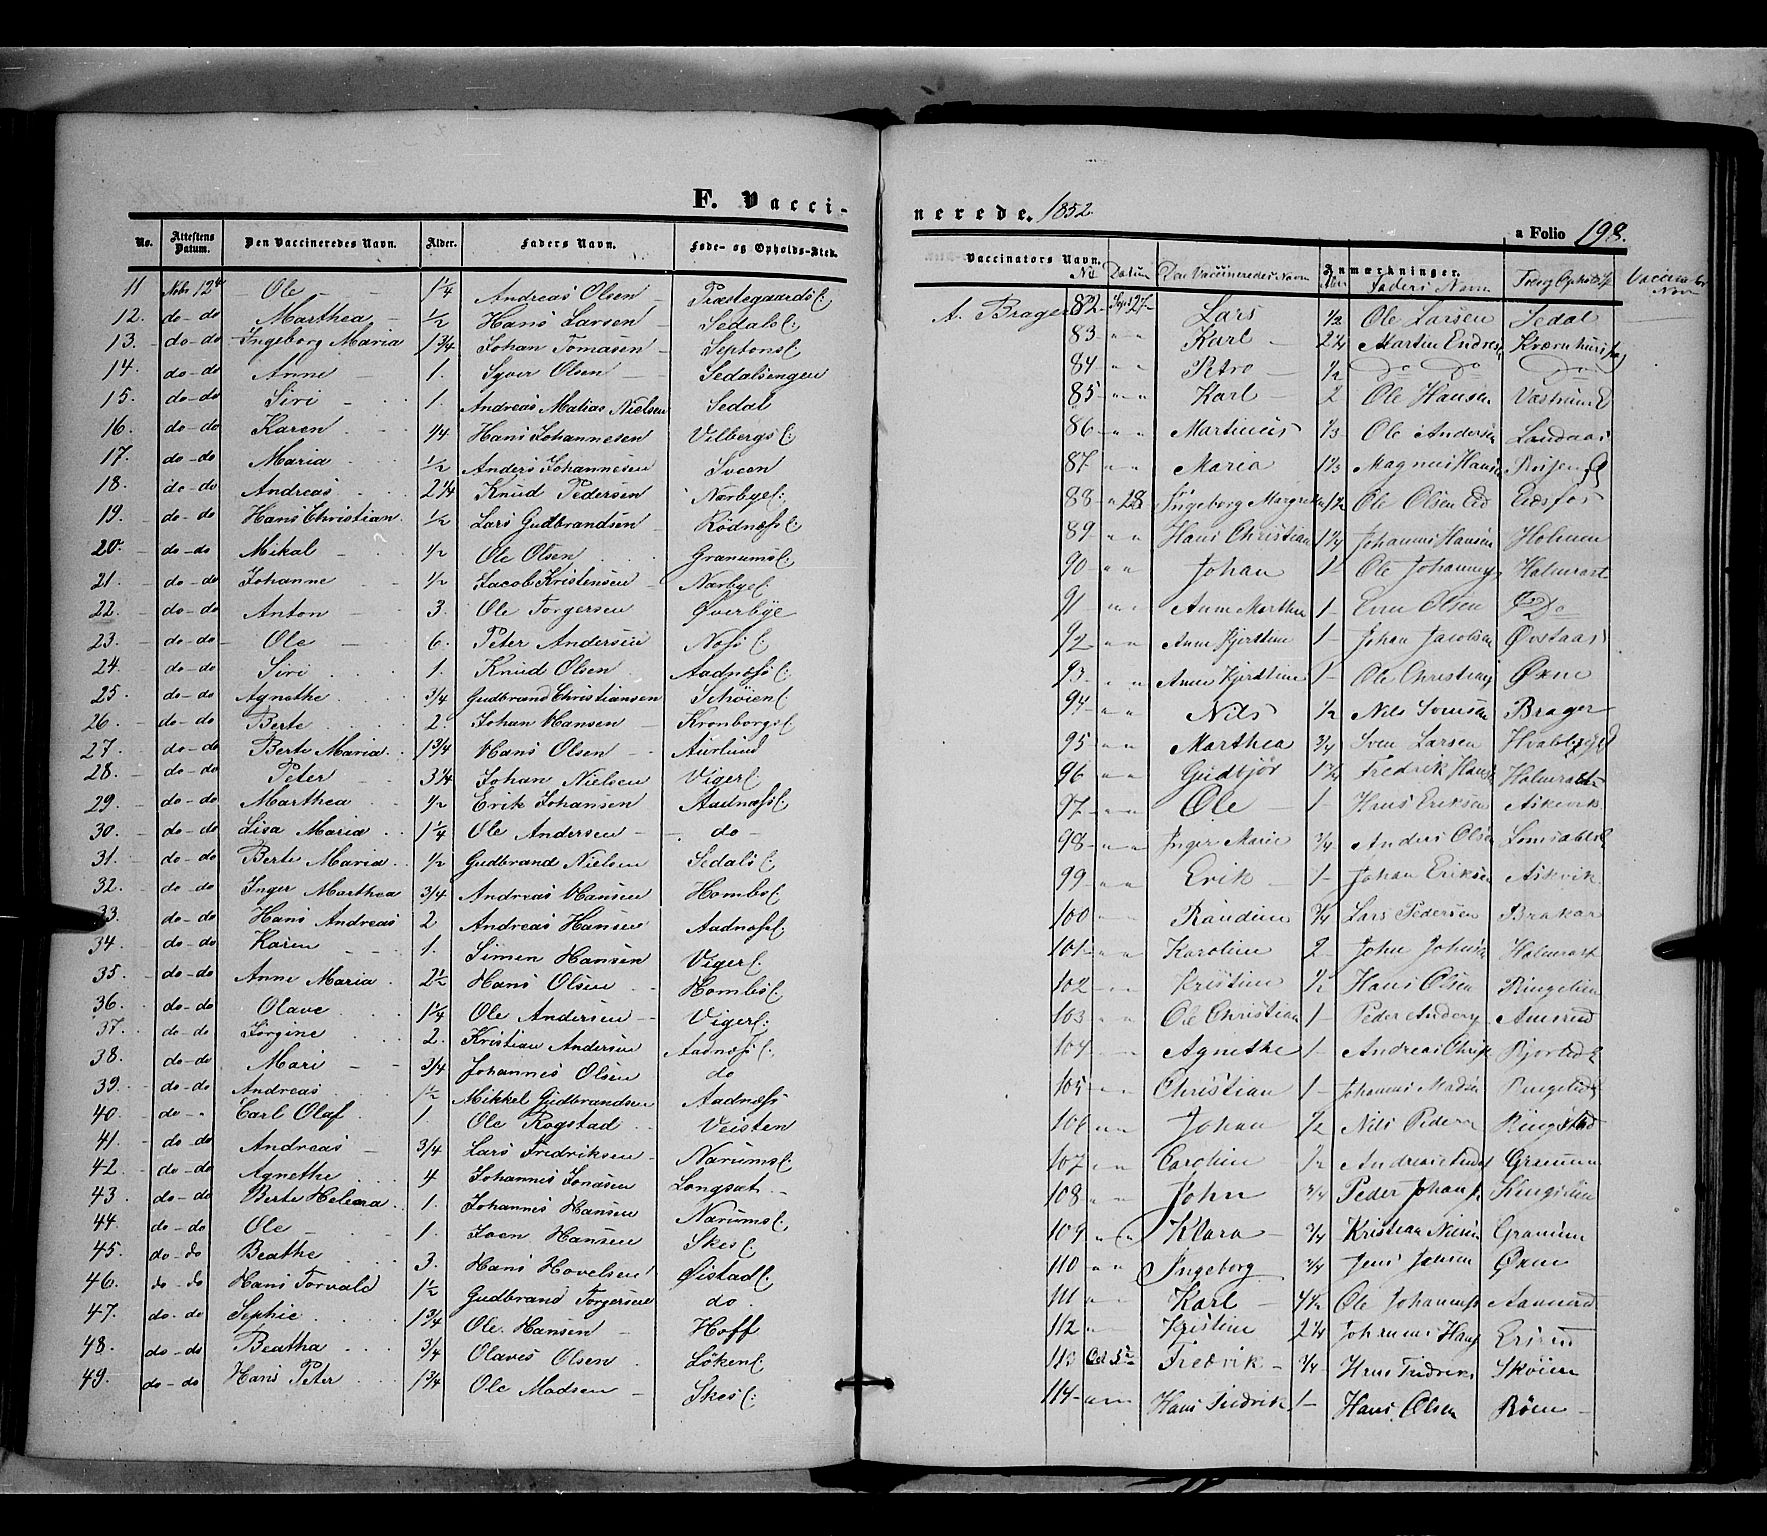 F. Vacci-
No. Attestens Datum. Den Vaccineredes Navn. Alder. Faders Navn. Føde- og Opholds-Sted.
11 Nobr 12te Ole 1 1/4 Andreas Olsen Præstegaards[:
12. do-do Marthea 1/2 Hans Larsen Sedals[:
13. do-do Ingeborg Maria 1 3/4 Johan Tomasen Septons[
14 do-do Anne 1. Syver Olsen Sedalsengen
15. do-do Siri 1. Andreas Matias Nielsen Sedal
16. do-do Karen 1/4 Hans Johannesen Vilbergs[:
17. do-do Maria 1/2 Anders Johannesen Sveen
18. do-do Andreas 2 1/4 Knud Pedersen Nærbye[:
19. do-do Hans Christian 1/2 Lars Gudbrandsen Rödnæss[
20. do-do Mikal 1/2 Ole Olsen Granums[
21. do-do Johanne 1/2 Jacob Kristensen Nærbye[
22. do-do Anton 3. Ole Torgersen Øverbye
23. do-do Ole 6. Peter Andersen Noss[:
24. do-do Siri 1. Knud Olsen Aadnæss[:
25. do-do Agnethe 3/4 Gudbrand Christiansen Schöien[
26. do-do Berte 2 Johan Hansen Kronborgs[
27. do-do Berte Maria 1 3/4 Hans Olsen Aurlund
28. do-do Peter 3 1/4 Johan Nielsen Viger[:
29. do-do Marthea 1/2 Erik Johansen Aadnæss[
30. do-do Lisa Maria 1 1/4 Ole Andersen do
31. do-do Berte Maria 1/2 Gudbrand Nielsen Sedals[:
32. do-do Inger Marthea 3/4 Andreas Hansen Hombs[
33. do-do Hans Andreas 2 Andreas Hansen Aadnæss[
34. do-do Karen 1. Simen Hansen Viger[.
35. do-do Anne Maria 2 1/2 Hans Olsen Hombs[
36. do-do Olave 1 1/4 Ole Andersen Viger[:
37. do-do Jörgine 2. Kristian Andersen Aadnæss[:
38. do-do Mari 3/4 Johannes Olsen do
39. do-do Andreas 1 1/2 Mikkel Gudbrandsen Aadnæss
40. do- Carl Olaf 1. Ole Rogstad Veisten
41. do-do Andreas 3/4 Lars Fredriksen Narums[
42. do-do Agnethe 4 Johannes Jonasen Longsæt
43. do-do Berte Helena 1. Johannes Hansen Narums[:
44. do-do Ole 1. Joen Hansen Skes[:
45. do-do Beathe 3. Hans Hovelsen Øistad[:
46. do-do Hans Torvald 1 1/2 Gudbrand Torgersen do.
47. do-do Sophie 1 3/4 Ole Hansen Hoff
48. do-do Beatha 3/4 Olaves Olsen Löken[
49. do-do Hans Peter 1 3/4 Ole Madsen Skes[:
nerede. 1852.
a Folio 198.
Vaccinators Navn. Anmærkninger.
No Datum Den Vaccineredes Navn Alder Faders Navn Vaccinators Navn
A. Brager 82 Sept 27 Lars 1/2 Ole Larsen Sedal
83 Karl 2 1/4 Martin
84 Petro 1/2 Do Do Do
85 Karl 2 Ole Hansen
86 Martinus 1/3 Ole Andersen Landaas
87 Maria 1 1/3 Magnus Hansen
88 28 Ingeborg 1/2 Ole Olsen Eid Eidsfos
89 Hans Christian 1 1/4 Johannes Hansen
90 Johan 1 Ole Holmrast
91 Anne Marthea 1 Olsen Do
92 Anne Kjerstine 1 Johan Jacobsen Øvstaas
93 Anne Kjerstine 1 Ole Øxne
94 Nils 1/2 Nils Brager
95 Marthea 3/4 Sven Larsen
96 Gudbjör Fredrik Holmrast
97 Ole 1 Hans Eriksen Askevik
98 Inger Marie 3/4 Anders Olsen
99 Erik 1 Johan Eriksen Askvik
100 Randine 3/4 Lars Pedersen Brakar
101 Karoline 2 John Johnsen Holmrast
102 Kristine 1/2 Hans Olsen
103 Ole Christian 1 Peder
104 Agnethe 1 Andreas
105 Christian 1 Johannes Madsen
106 Johan 1/2 Nils Ringstad
107 Caroline 1/2 Andreas Granum
108 John 3/4 Peder
109 Klara 3/4 Kristian Granum
110 Ingeborg 3/4 Jens Jensen Øxne
111 Karl 4 1/2 Ole
112 Kristine 2 1/4 Johannes
113 Oct 5te Fredrik 3/4 Hans Skøien
114 Hans Fredrik 1 Hans Olsen Röen